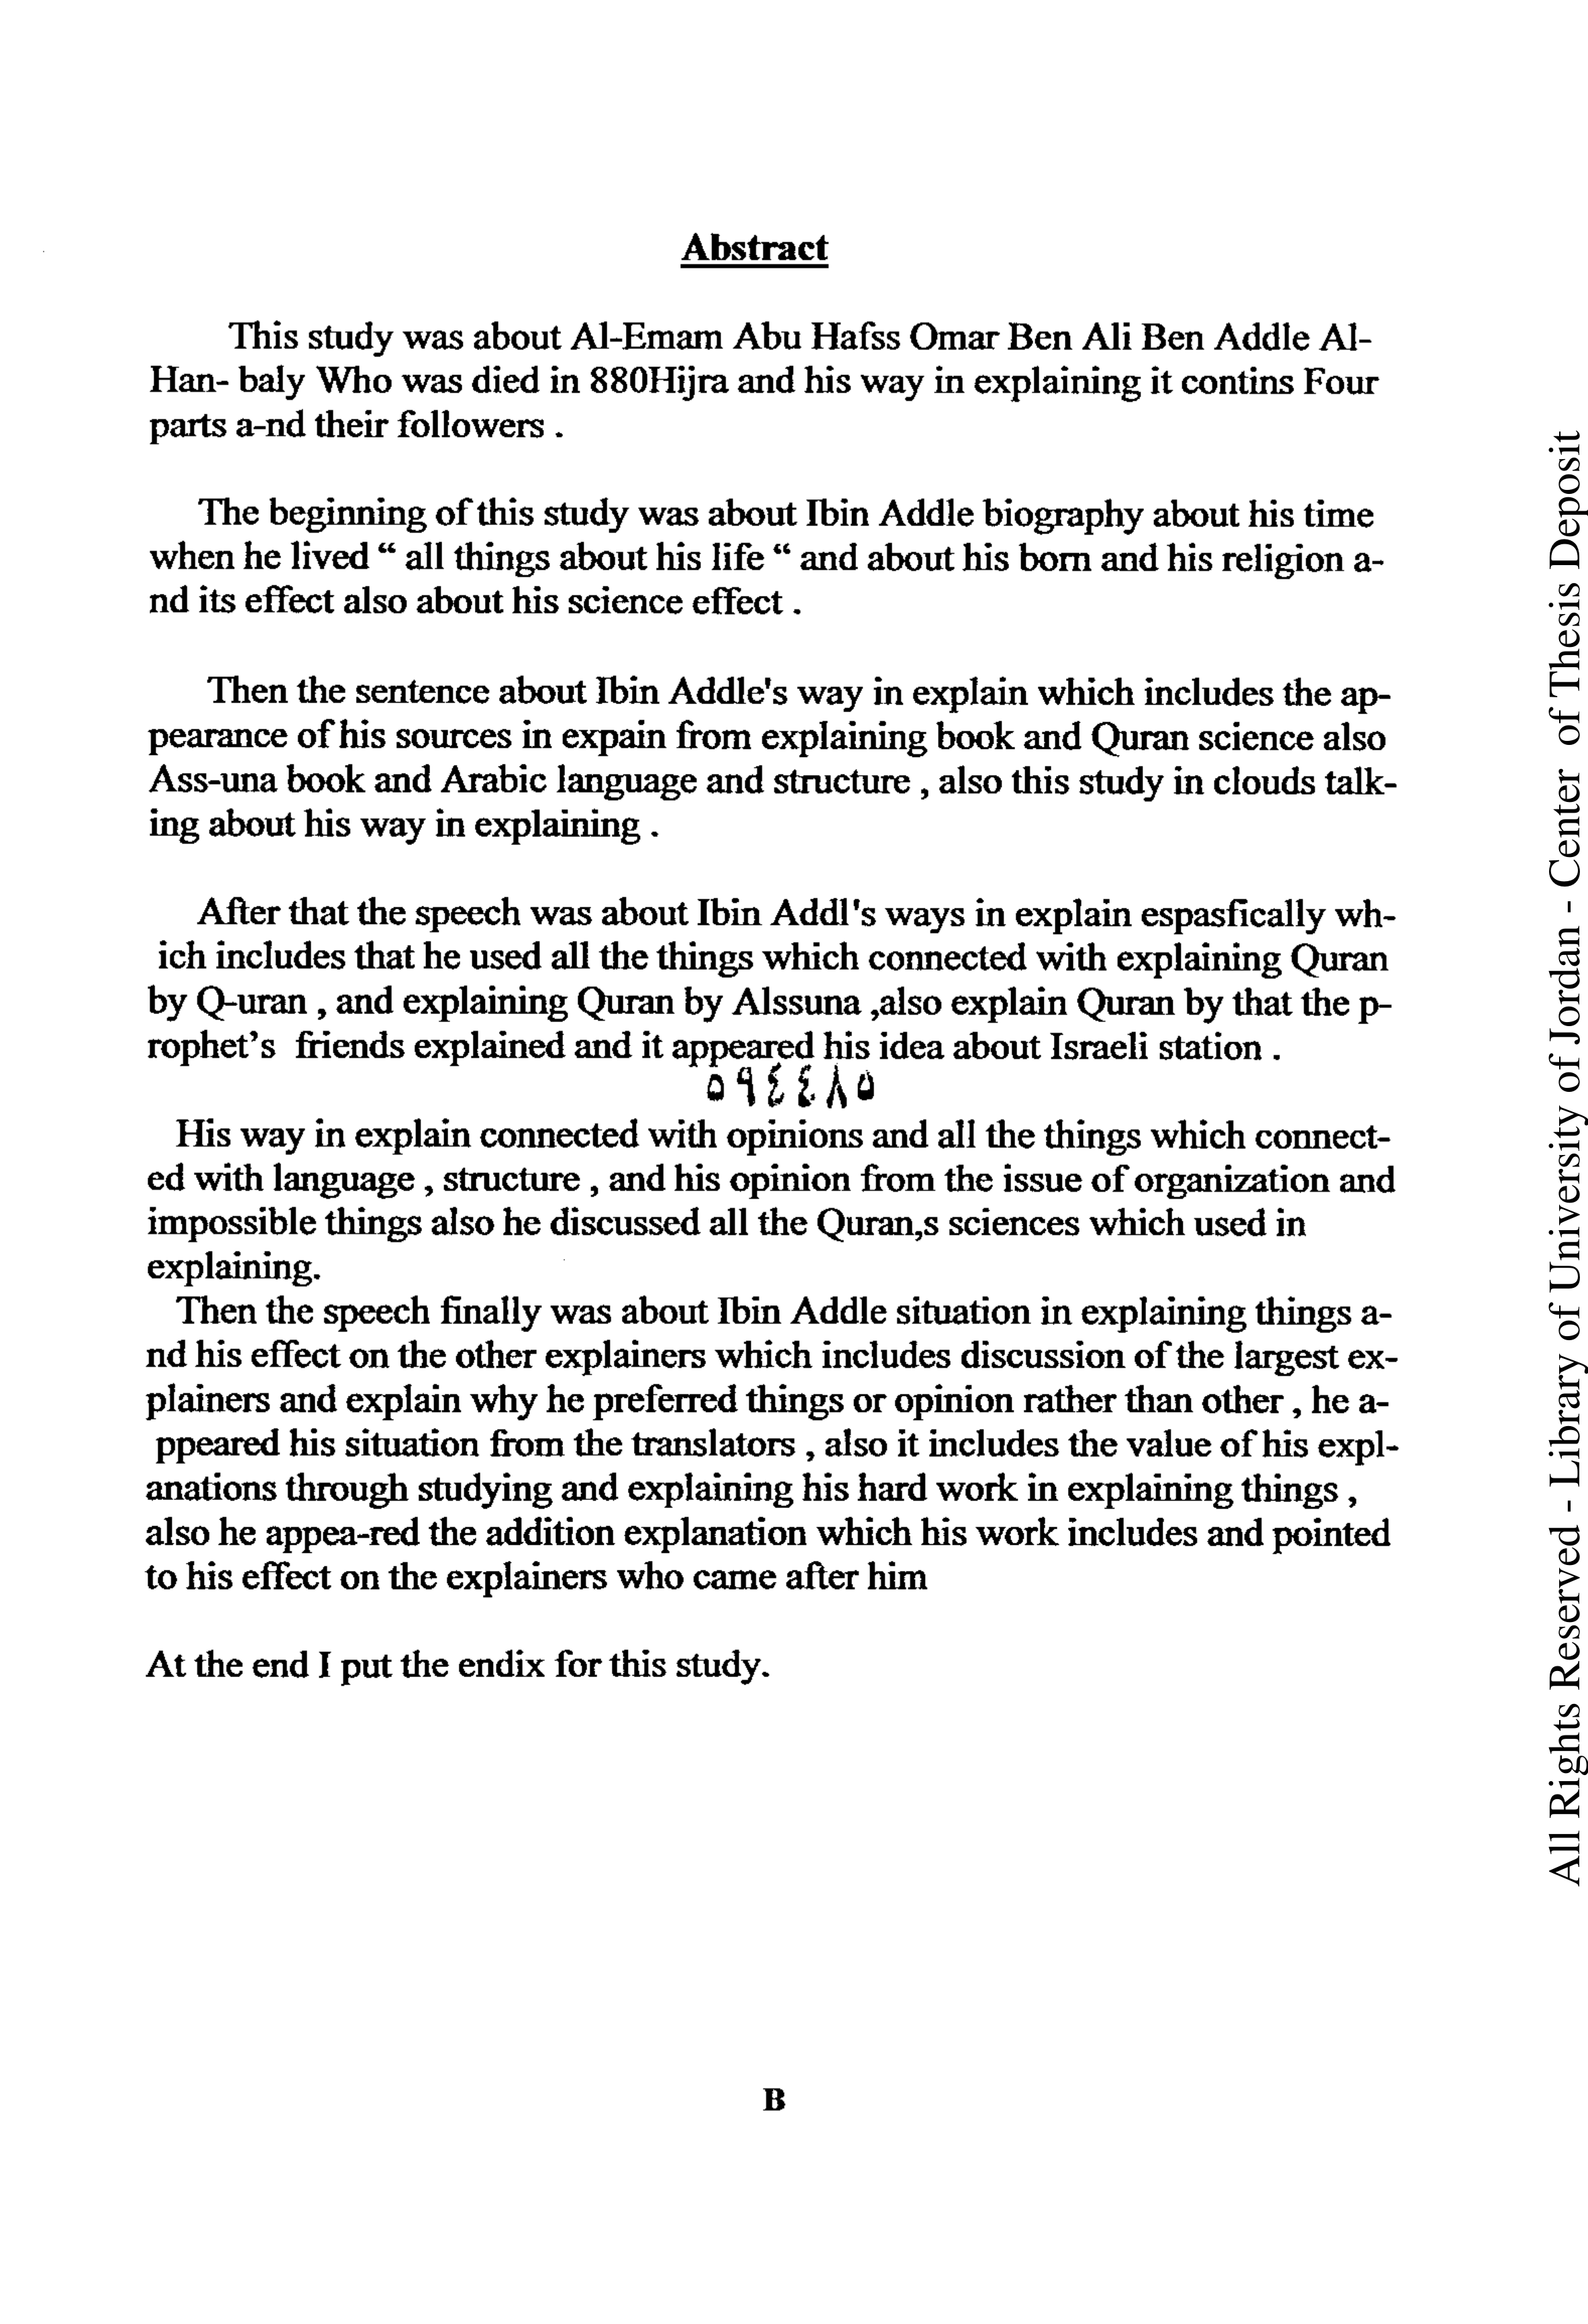 Abstract
This study was about Al-Emam Abu Hafss Omar Ben Ali Ben Addle Al-
Han- baly Who was died in 880Hijra and his way in explaining it contins Four
parts a-nd their followers .
The beginning of this study was about Ibin Addle biography about his time
when he lived “ all things about his life “ and about his born and his religion a-
nd its effect also about his science effect .
Then the sentence about Ibin Addle's way in explain which includes the ap-
pearance of his sources in expain from explaining book and Quran science also
Ass-una book and Arabic language and structure , also this study in clouds talk-
ing about his way in explaining .
After that the speech was about Ibin Addl's ways in explain espasfically wh-
ich includes that he used all the things which connected with explaining Quran
by Q-uran , and explaining Quran by Alssuna ,also explain Quran by that the p-
rophet’s friends explained and it appeared his idea about Israeli station .
٥٩٤٤٨٥
His way in explain connected with opinions and all the things which connect-
ed with language , structure , and his opinion from the issue of organization and
impossible things also he discussed all the Quran,s sciences which used in
explaining.
Then the speech finally was about Ibin Addle situation in explaining things a-
nd his effect on the other explainers which includes discussion of the largest ex-
plainers and explain why he preferred things or opinion rather than other , he a-
ppeared his situation from the translators , also it includes the value of his expl-
anations through studying and explaining his hard work in explaining things ,
also he appea-red the addition explanation which his work includes and pointed
to his effect on the explainers who came after him
At the end I put the endix for this study.
B
All Rights Reserved - Library of University of Jordan - Center of Thesis Deposit